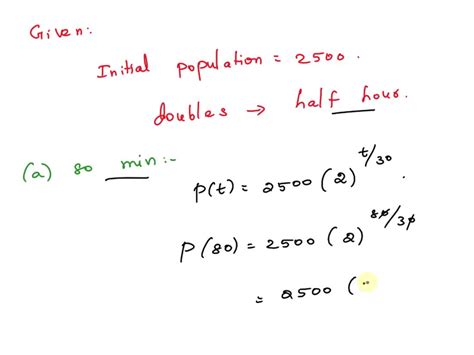 Given:
Initial population = 2500.
doubles → half hour.
(a) 80 min:-
P(t) = 2500 (2)^t/30.
P(80) = 2500 (2)^80/30
= 2500 (